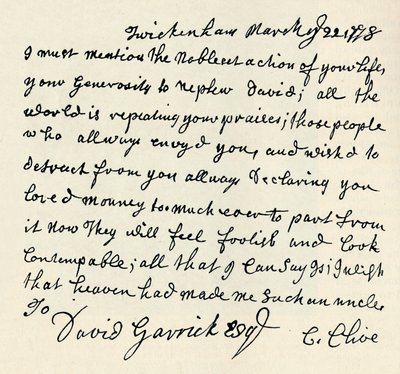 Twickenham March ye 22 1778
I must mention the Noblest action of your life,
your Generosity to nephew David; all the
world is repeating your praises; those people
who allways envyd you, and wishd to
detract from you allways Declaring you
loved money too much ever to part from
it now They will feel foolish and look
Contempable; all that I can say Is; I wish
that heaven had made me Such an uncle
To
David Garrick Esqr
C. Clive